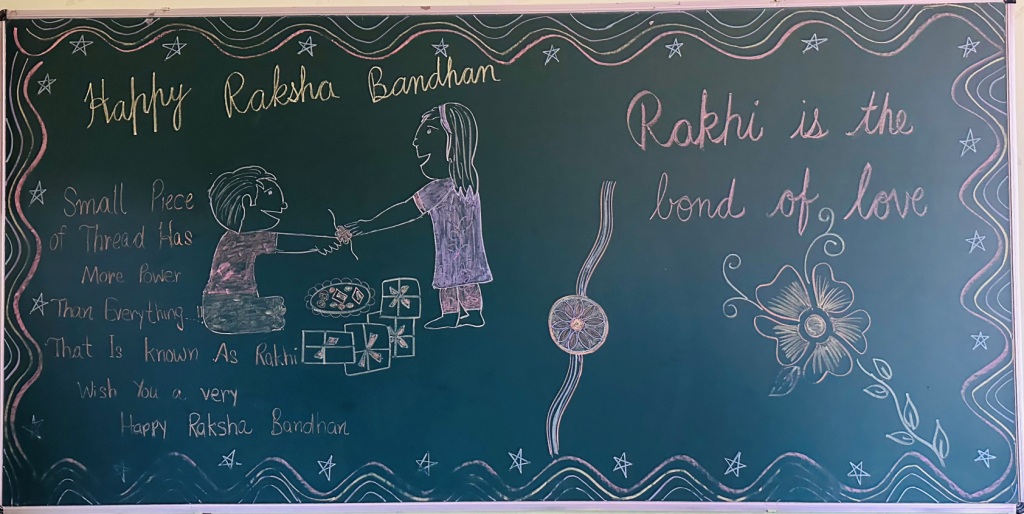 Happy Raksha Bandhan
Small Piece
of Thread Has
More Power
Than Everything...!!
That Is known As Rakhi
Wish You a very
Happy Raksha Bandhan
Rakhi is the
bond of love